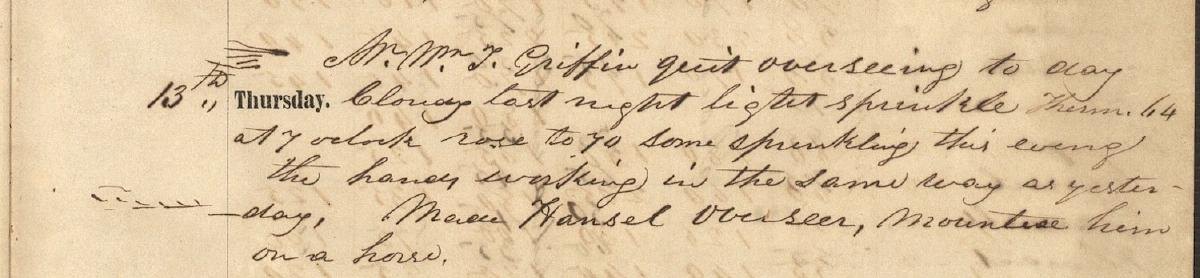 Mr. Wm T. Griffin quit overseeing to day
13th Thursday. Cloudy last night light sprinkle Therm. 64
at 7 oclock rose to 70 some sprinkling this eveng
the hands working in the same way as yester-
day, Made Hansel Overseer, Mounted him
on a horse.